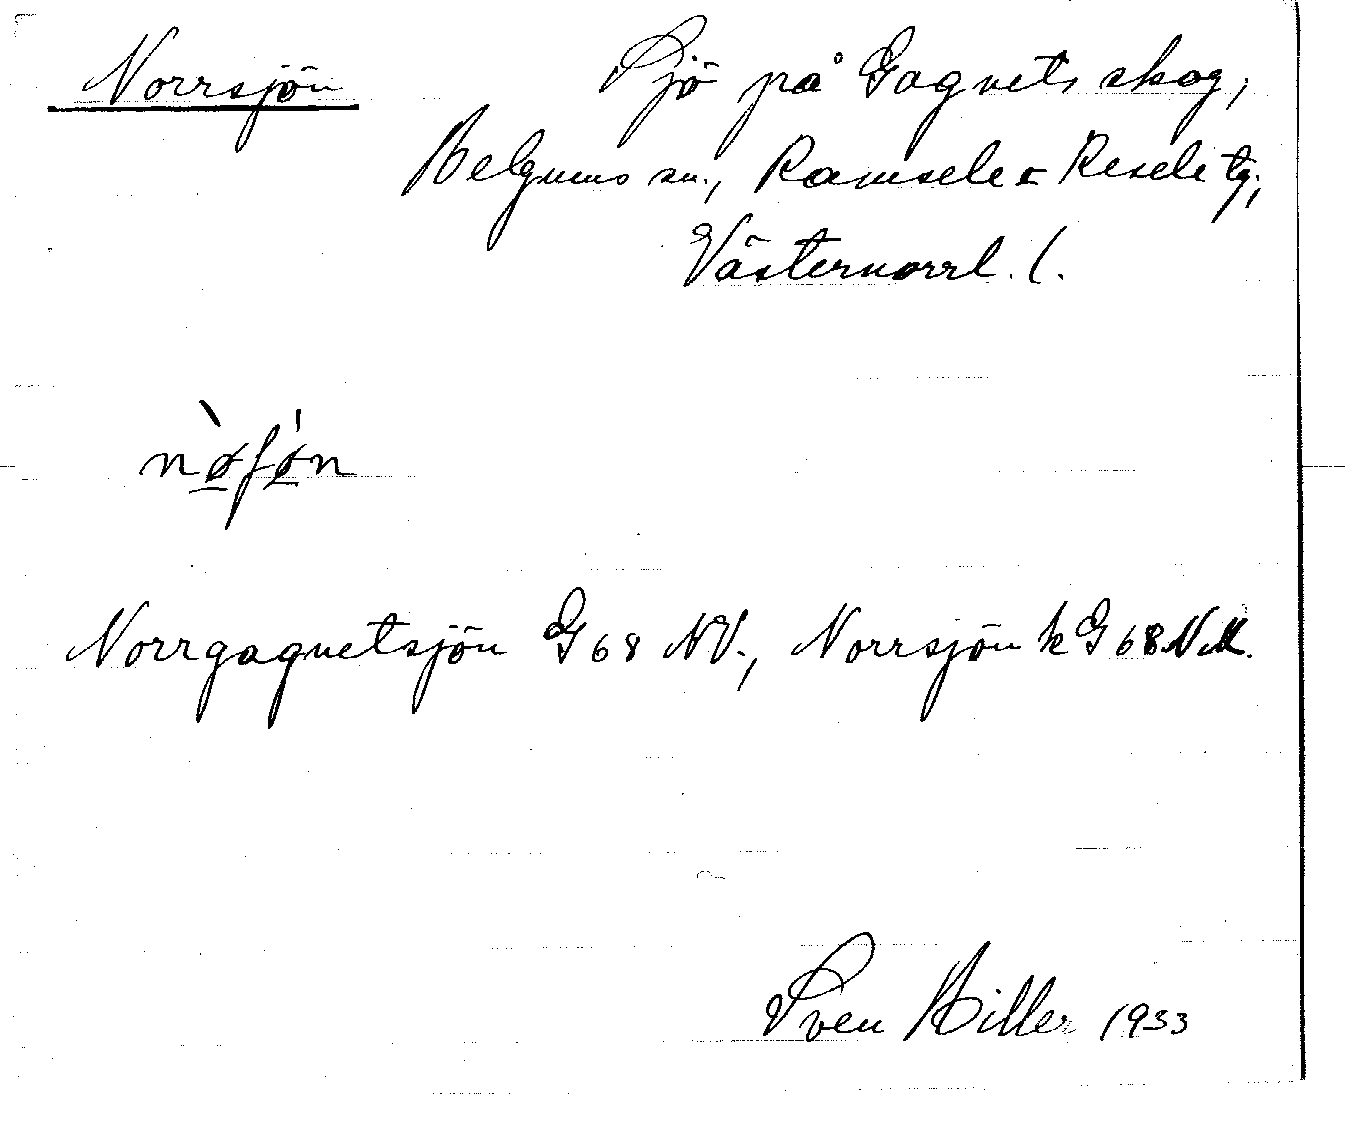 Norrsjön
Sjö på Gagnets skog,
Helgums sn., Ramsele o Resele tg;
Västernorrl. l.
nø̀ʃø̀n
Norrgagnetsjön G 68 NV., Norrsjön k G 68 NV.
Sven Hiller 1933